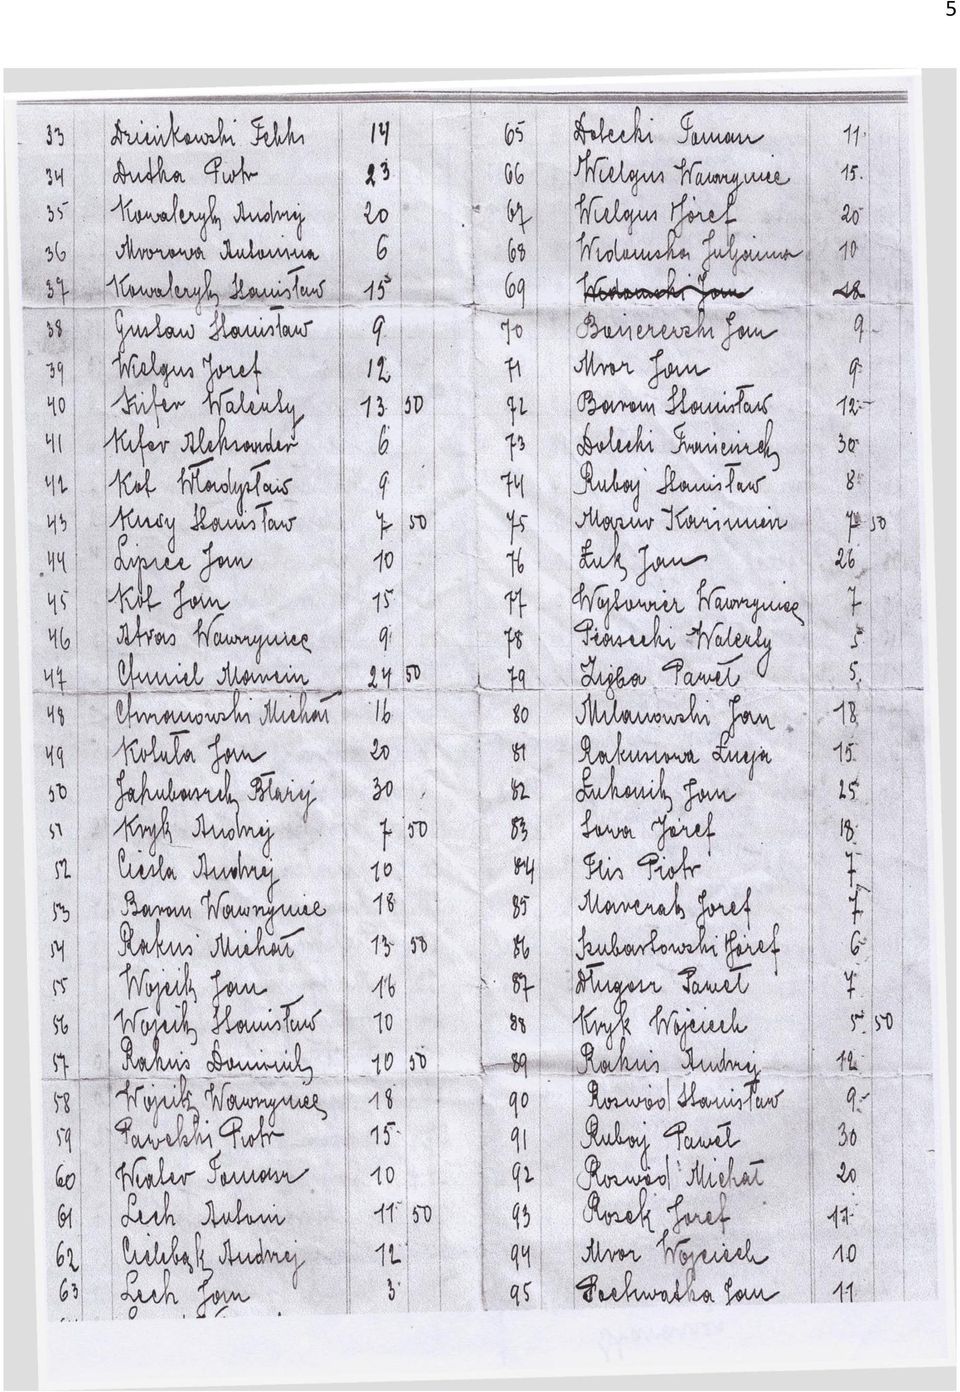 5
33 Dzieńkowski Feliks 14
34 Dudka Piotr 23
35 Kowalczyk Andrzej 20
36 Mrozowa Antonina 6
37 Kowalczyk Stanisław 15
38 Guzław Stanisław 9
39 Wielgus Józef 12
40 Kifer Walenty 13 50
41 Kifer Aleksander 6
42 Kot Władysław 9
43 Stanisław 7 50
44 Lipiec Jan 10
45 Kot Jan 15
46 Wawrzyniec 9
47 Chmiel Marcin 24 50
48 Chranowski Michał 16
49 Koluta Jan 20
50 Jakubaszek Błażej 30
51 Kryk Andrzej 7 50
52 Cieśla Andrzej 10
53 Baran Wawrzyniec 18
54 Rakuś Michał 13 50
55 Wójcik Jan 16
56 Wójcik Stanisław 10
57 Rakuś Dominik 10 50
58 Wójcik Wawrzyniec 18
59 Pawelski Piotr 15
60 Wiater Tomasz 10
61 Lech Antoni 11 50
62 Cielebąk Andrzej 12
63 Lech Jan 3
65 Dolecki Tomasz 11
66 Wielgus Wawrzyniec 15
67 Wielgus Józef 20
68 Widomska Juljanna 10
69 Widomski Jan 18
70 Jan 9
71 Mroz Jan 9
72 Baran Stanisław 12
73 Dolecki Franciszek 30
74 Rubaj Stanisław 8
75 Mazur Kazimierz 7 50
76 Łuk Jan 26
77 Wójtowicz Wawrzyniec 7
78 Piasecki Walenty 5
79 Zięba Paweł 5
80 Milanowski Jan 18
81 Rakusiowa Łucja 15
82 Łukasik Jan 25
83 Sowa Józef 18
84 Flis Piotr 7
85 Marczak Józef 7
86 Szubartowski Józef 6
87 Długosz Paweł 7
88 Kryk Wojciech 5 50
89 Rakuś Andrzej 12
90 Rozwód Stanisław 9
91 Rubaj Paweł 30
92 Rozwód Michał 20
93 Rosek Józef 11
94 Mroz Wojciech 10
95 Pochwatka Jan 11